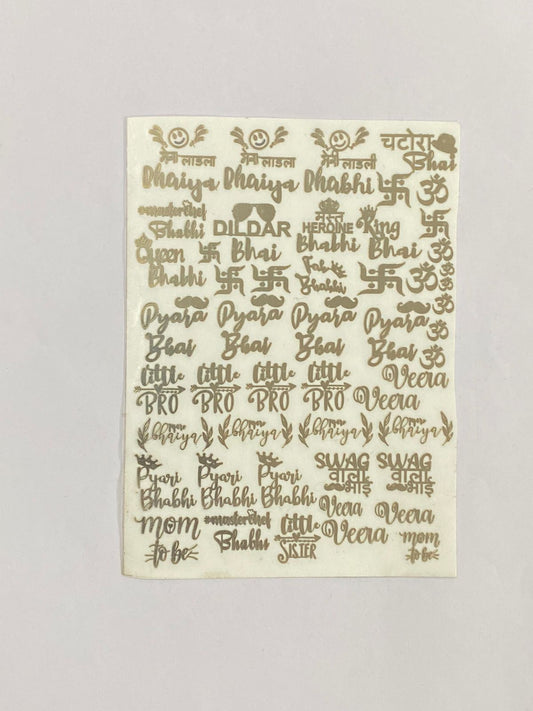 मेरा लाडला मेरा लाडला मेरी लाडली चटोरा
Bhaiya Bhaiya Bhabhi Bhai
卐 ॐ
#masterchef DILDAR मस्त HEROINE King 卐
Bhabhi Bhai Bhabhi Bhai ॐ
Queen 卐 Fab
Bhabhi 卐 卐 Bhabhi 卐 ॐ ॐ
ॐ ॐ
Pyara Pyara Pyara Pyara ॐ
Bhai Bhai Bhai Bhai ॐ
Little Little Little Little Veera
BRO BRO BRO BRO Veera
bhaiya bhaiya bhaiya bhaiya
Pyari Pyari Pyari SWAG SWAG
Bhabhi Bhabhi Bhabhi वाला वाला
भाई भाई
Veera Veera
mom #masterchef Little Veera mom
to be Bhabhi SISTER to be